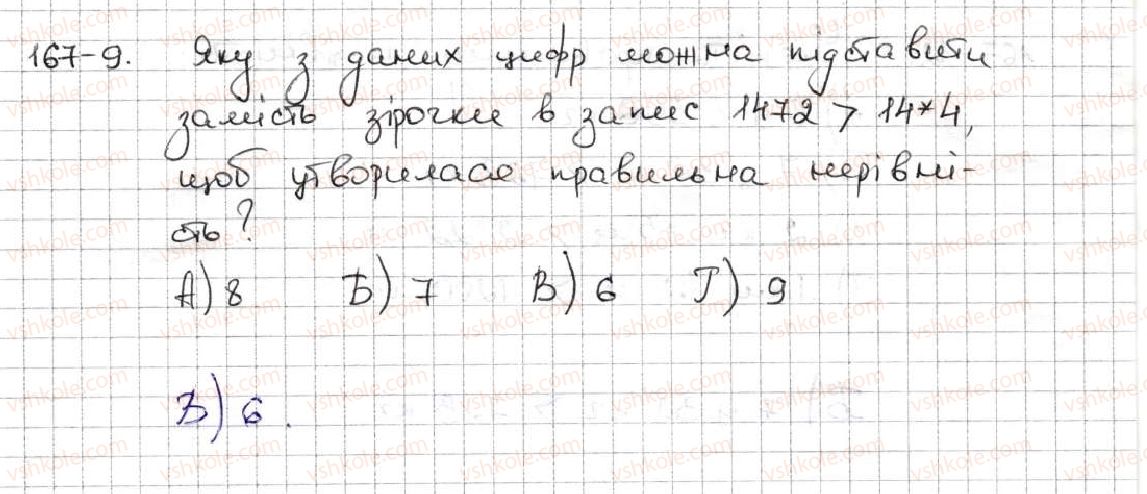 167-9. Яку з даних цифр можна підставити
замість зірочки в запис 1472 > 14*4,
щоб утворилася правильна нерівні-
сть?
А) 8 Б) 7 В) 6 Г) 9
В) 6.